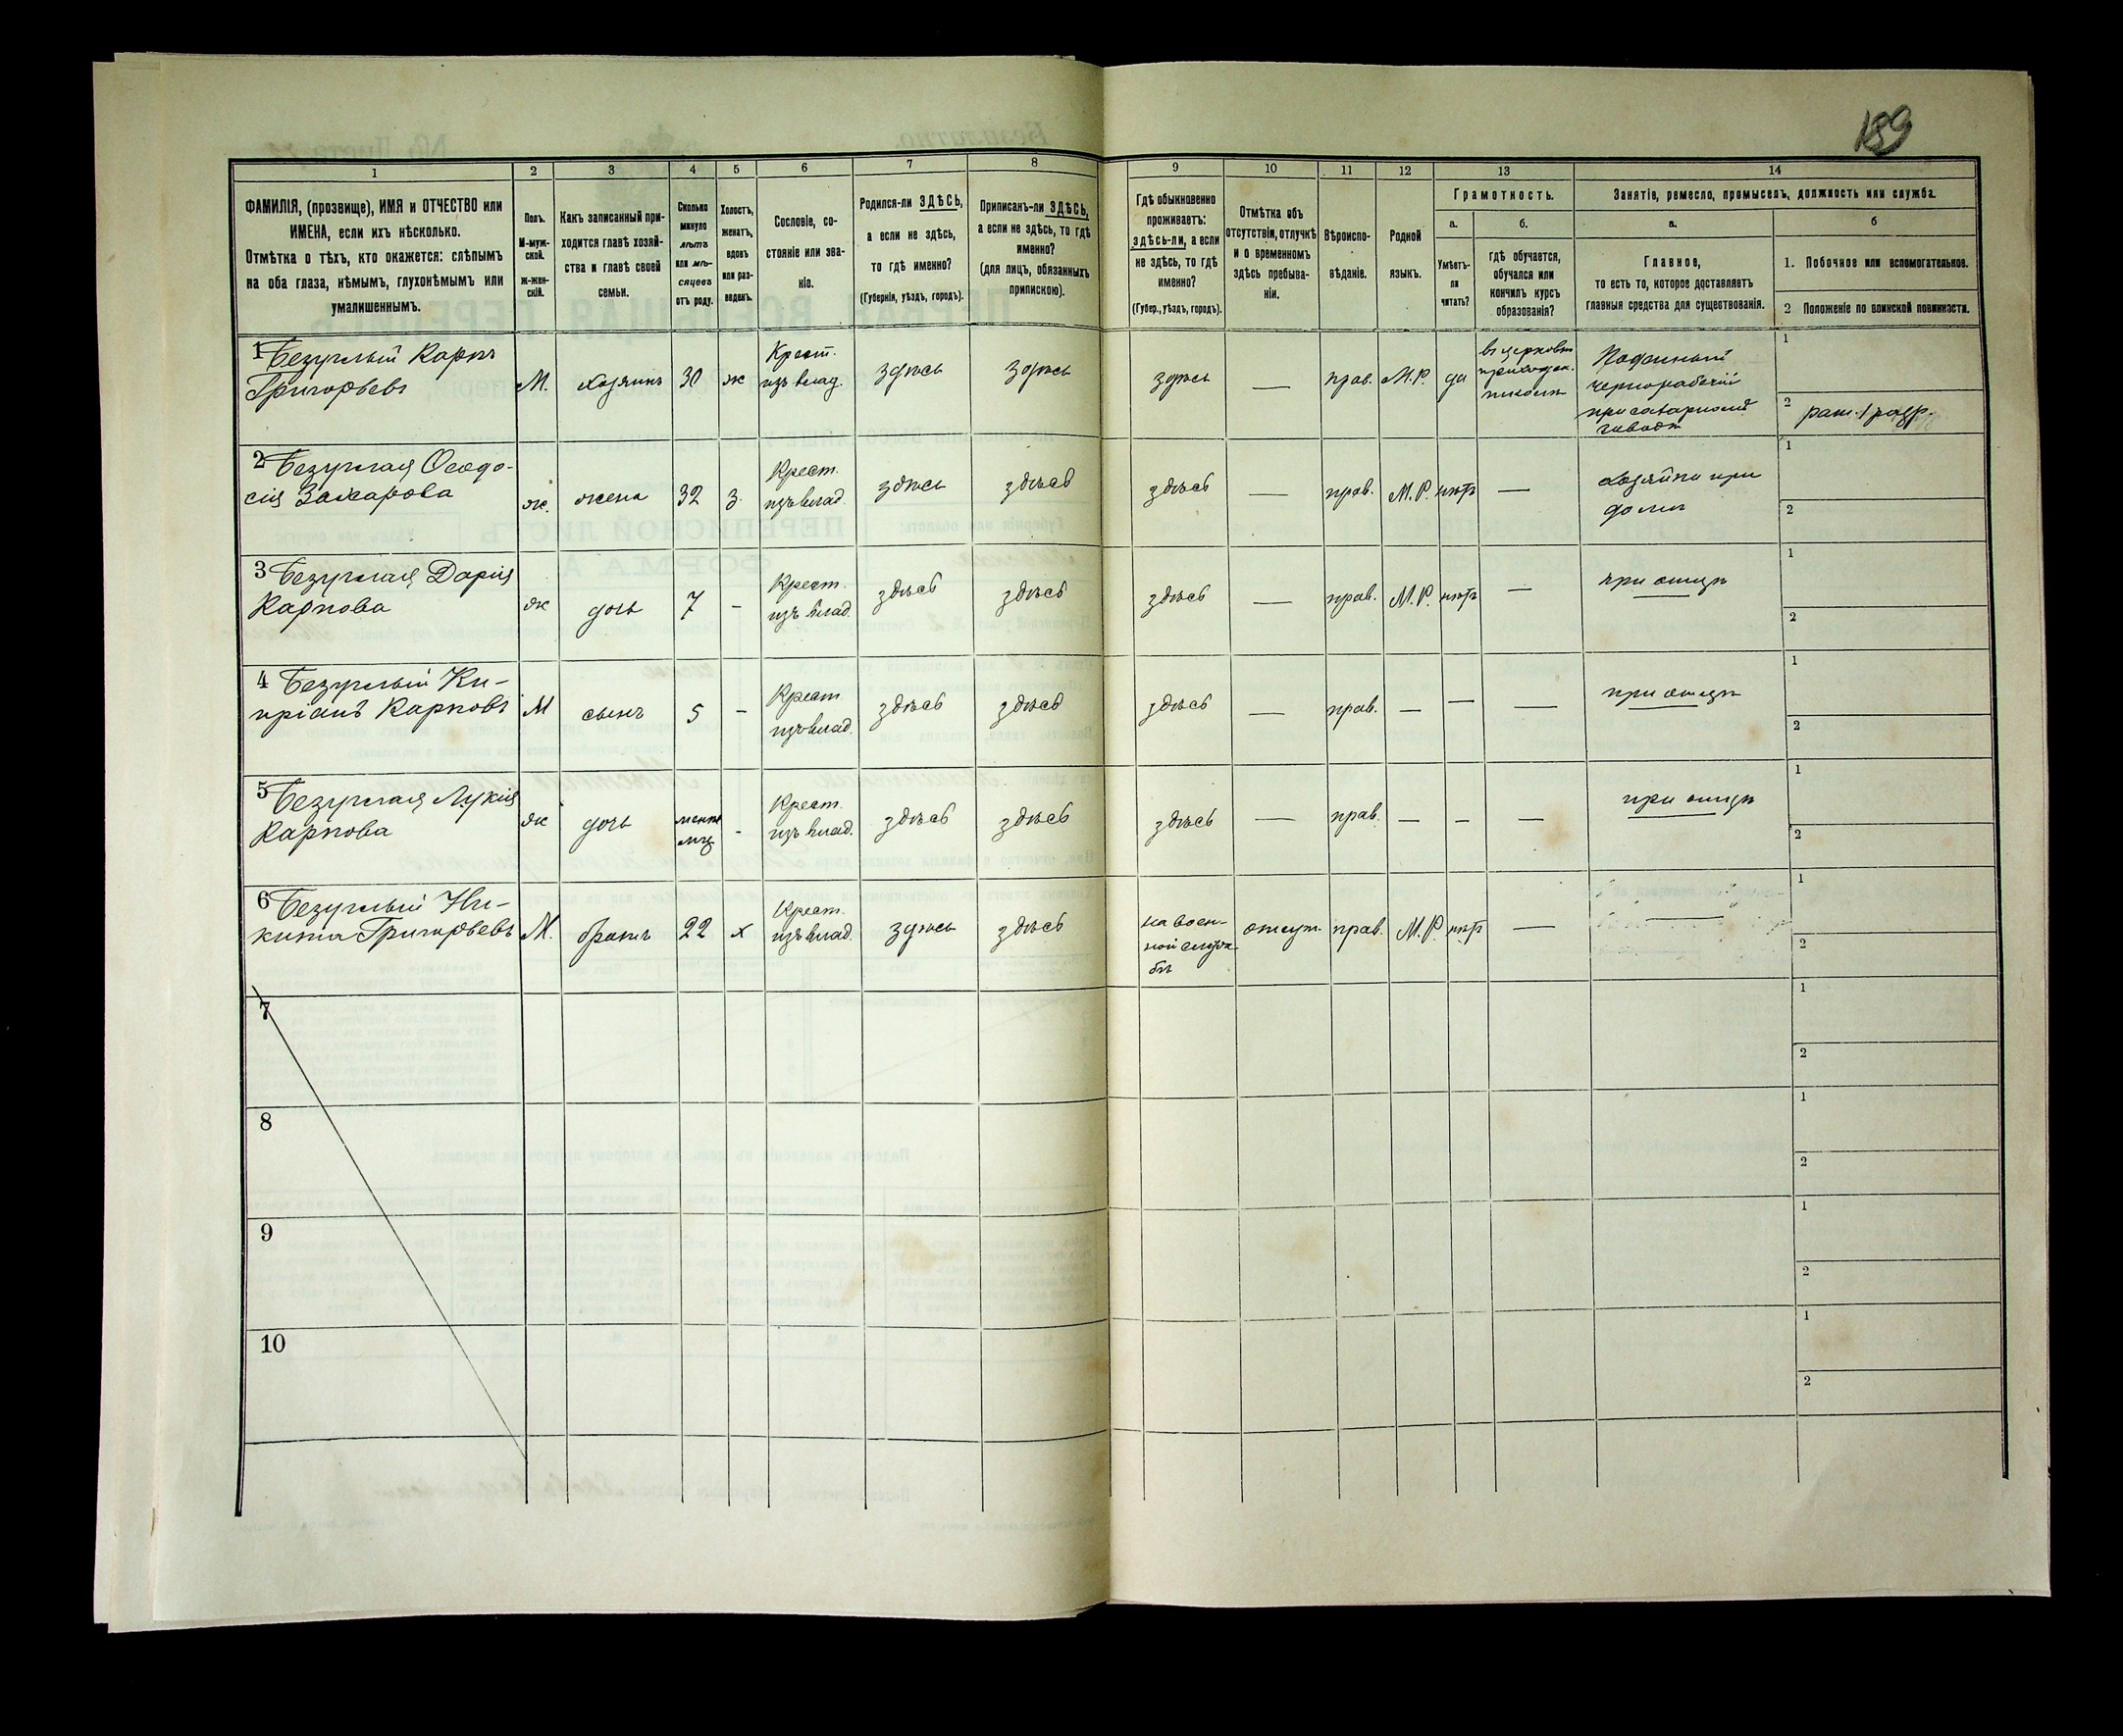 189
1
2
3
4
5
6
7
8
9
10
11
12
13
14
ФАМИЛІЯ, (прозвище), ИМЯ и ОТЧЕСТВО или
ИМЕНА, если ихъ нѣсколько.
Отмѣтка о тѣхъ, кто окажется: слѣпымъ
на оба глаза, нѣмымъ, глухонѣмымъ или
умалишеннымъ.
Полъ.
М-муж-
ской.
ж-жен-
скій.
Какъ записанный при-
ходится главѣ хозяй-
ства и главѣ своей
семьи.
Сколько
минуло
лѣтъ
или мѣ-
сяцевъ
отъ роду.
Холостъ,
женатъ,
вдовъ
или раз-
веденъ.
Сословіе, со-
стояніе или зва-
ніе.
Родился-ли ЗДѢСЬ,
а если не здѣсь,
то гдѣ именно?
(Губернія, уѣздъ, городъ).
Приписанъ-ли ЗДѢСЬ,
а если не здѣсь, то гдѣ
именно?
(для лицъ, обязанныхъ
припискою).
Гдѣ обыкновенно
проживаетъ:
здѣсь-ли, а если
не здѣсь, то гдѣ
именно?
(Губер., уѣздъ, городъ).
Отмѣтка объ
отсутствіи, отлучкѣ
и о временномъ
здѣсь пребыва-
ніи.
Вѣроиспо-
вѣданіе.
Родной
языкъ.
Грамотность.
а.
б.
Умѣетъ-
ли
читать?
гдѣ обучается,
обучался или
кончилъ курсъ
образованія?
Занятіе, ремесло, промыселъ, должность или служба.
а.
б
Главное,
то есть то, которое доставляетъ
главныя средства для существованія.
1. Побочное или вспомогательное.
2 Положеніе по воинской повинности.
1 Безуглый Карпъ
Григорьевъ
М.
хозяинъ
30
ж
Крест.
изъ влад.
здѣсь
здѣсь
здѣсь
—
прав.
М.Р.
да
въ церковно
приходск.
школѣ
Поденный
чернорабочій
при сахарномъ
заводѣ
1
2 рат. 1 разр.
2 Безуглая Ѳеодо-
сія Захарова
ж.
жена
32
з.
Крест.
изъ влад.
здѣсь
здѣсь
здѣсь
—
прав.
М.Р.
нѣтъ
—
хозяйка при
домѣ
1
2
3 Безуглая Дарія
Карпова
ж
дочь
7
-
Крест.
изъ влад.
здѣсь
здѣсь
здѣсь
—
прав.
М.Р.
нѣтъ
—
при отцѣ
1
2
4 Безуглый Ки-
пріанъ Карповъ
М
сынъ
5
-
Крест.
изъ влад.
здѣсь
здѣсь
здѣсь
—
прав.
—
—
—
при отцѣ
1
2
5 Безуглая Лукія
Карпова
ж
дочь
-
Крест.
изъ влад.
здѣсь
здѣсь
здѣсь
—
прав.
—
—
—
при отцѣ
1
2
6 Безуглый Ни-
кита Григорьевъ
М.
братъ
22
х
Крест.
изъ влад.
здѣсь
здѣсь
на воен-
ной служ-
бѣ
отсут.
прав.
М.Р.
нѣтъ
—
—
1
2
7
1
2
8
1
2
9
1
2
10
1
2